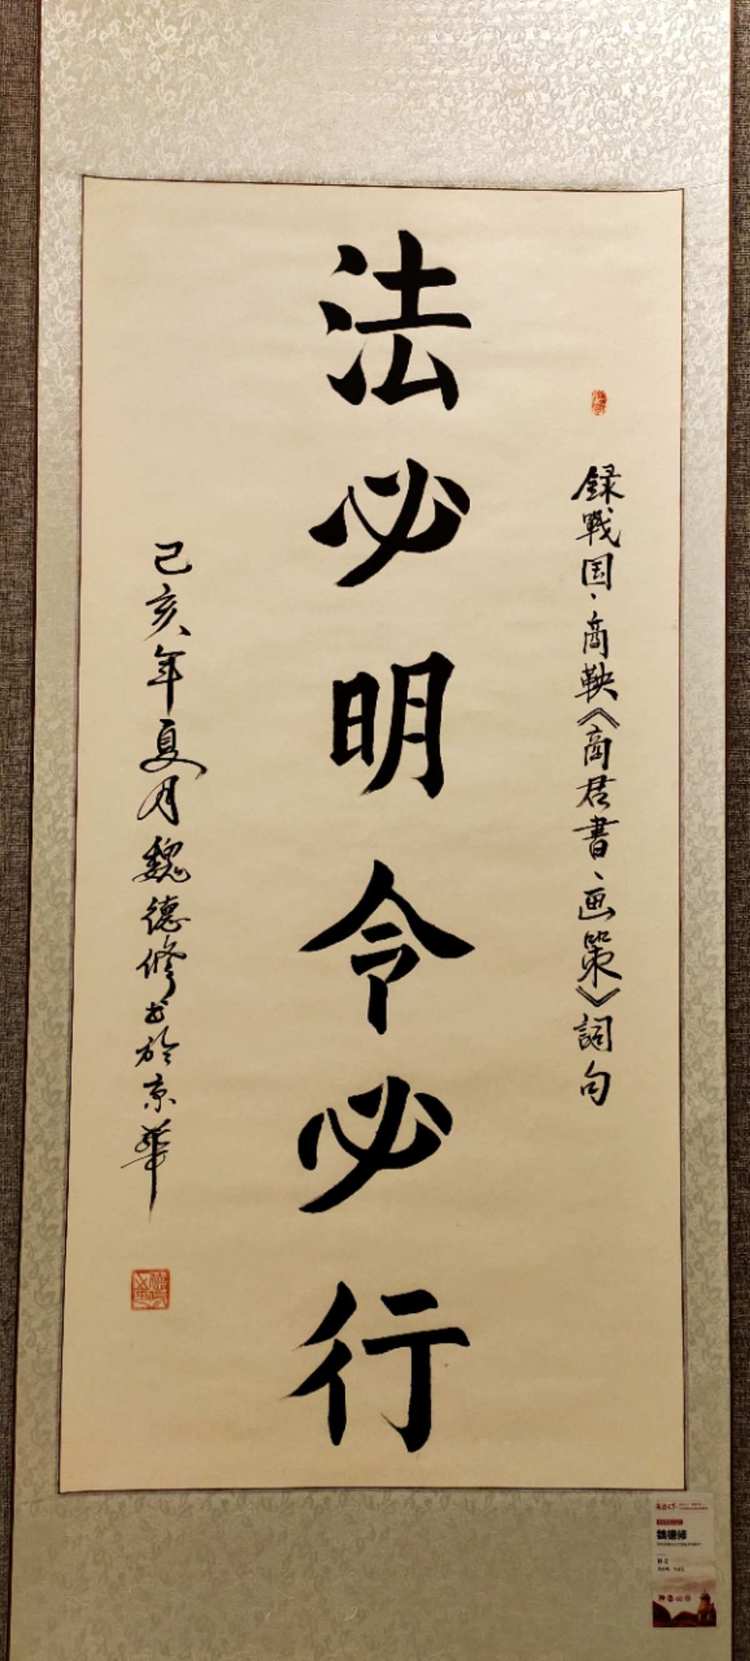 録戰国·商鞅《商君書·画策》詞句
法必明令必行
己亥年夏月魏德修书於京華
魏德修